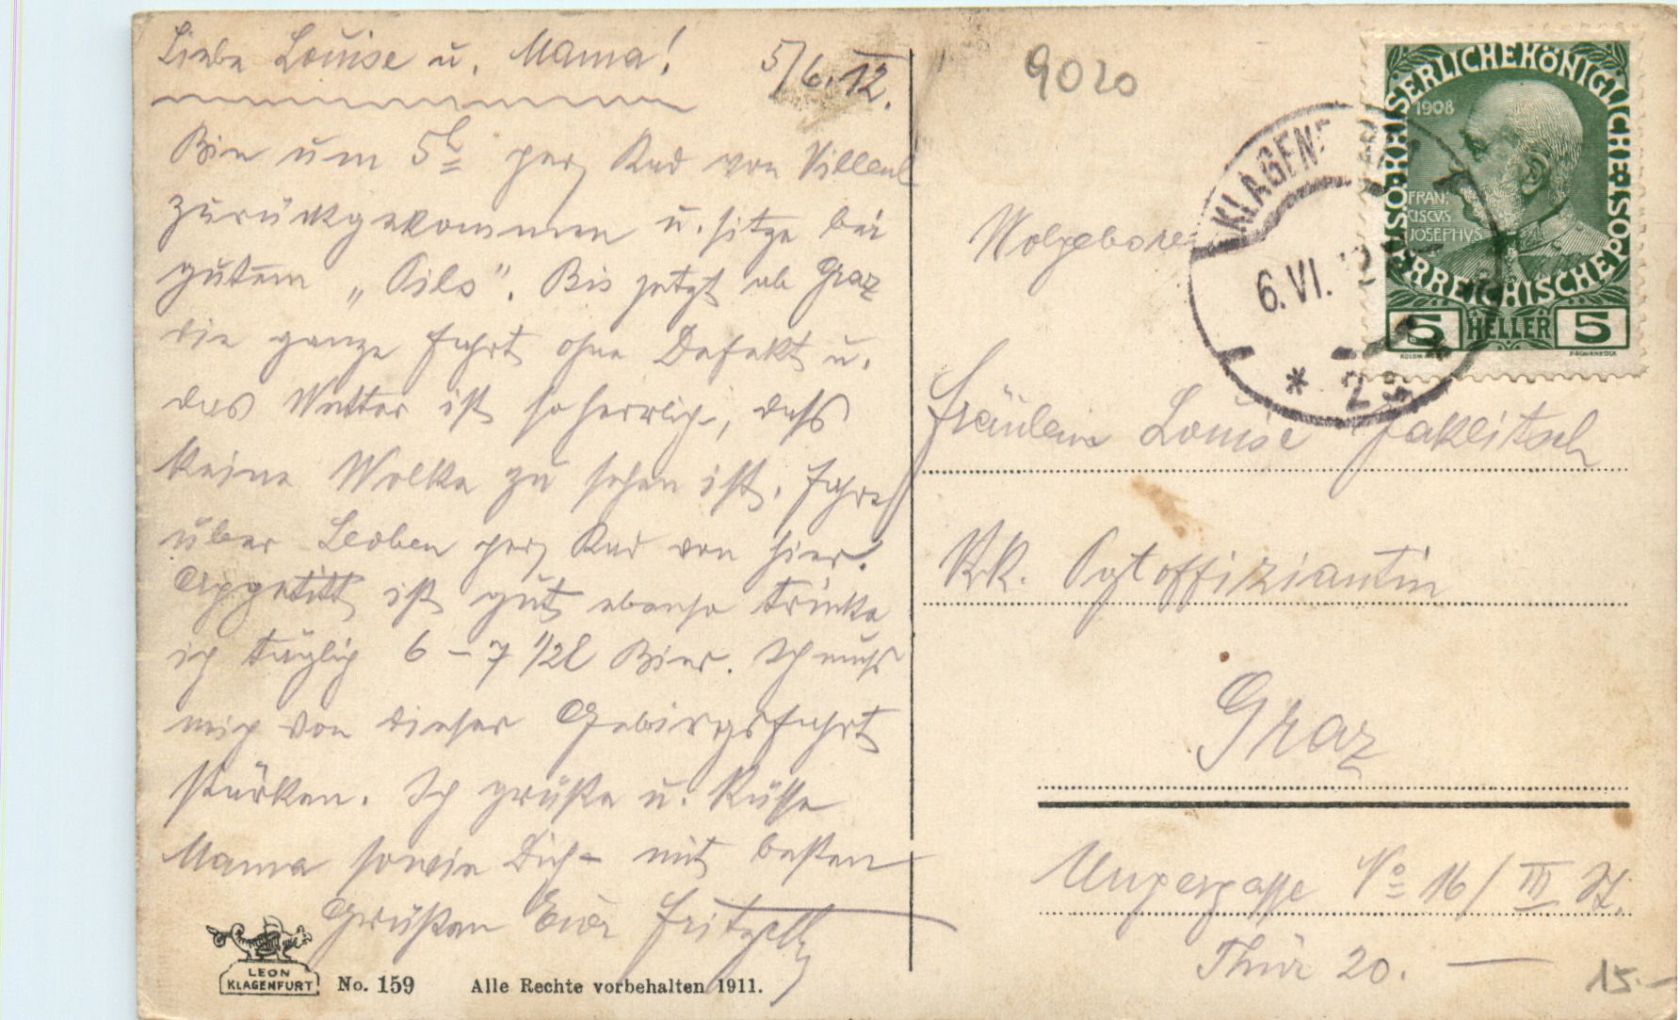 Liebe Louise u. Mama!
5/6. 12.
Bin um 5h per Rad von Villach
zurückgekommen u. sitze bei
gutem „Pils". Bis jetzt ab Graz
die ganze Fahrt ohne Defekt u.
das Wetter ist so herrlich, dass
keine Wolke zu sehen ist. Fahre
über Leoben per Rad von hier.
Appetitt ist gut ebenso trinke
ich täglich 6 - 7 1/2l Bier. Ich muß
mich von dieser Gebirgsfahrt
stärken. Ich grüße u. küsse
Mama sowie Dich - mit besten
Grüßen Euer
LEON
KLAGENFURT
No. 159
Alle Rechte vorbehalten 1911.
9020
KLAGENF
6. VI. 12
* 2
KAISERLICHE KÖNIGLICHE ÖSTERREICHISCHE POST
1908
FRAN
CISCVS
JOSEPHVS
5 HELLER 5
Wolgeboren
Fräulein Louise Jaklitsch
KK. Postoffiziantin
Graz
Ungergasse No 16/III St.
Thür 20. —
15.-